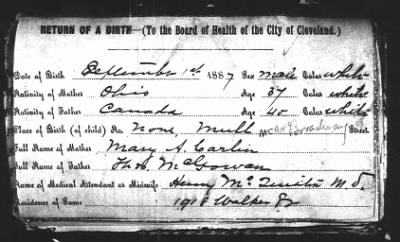 RETURN OF A BIRTH—(To the Board of Health of the City of Cleveland.)
Date of Birth September 1st 1887 Sex male Color white
Nativity of Mother Ohio Age 37 Color white
Nativity of Father Canada Age 40 Color white
Place of Birth (of child) No. none, near Broadway Street
Full Name of Mother Mary A. Carlin
Full Name of Father Thos. McGowan
Name of Medical Attendant or Midwife Henry M. D.
Residence of Same 1918